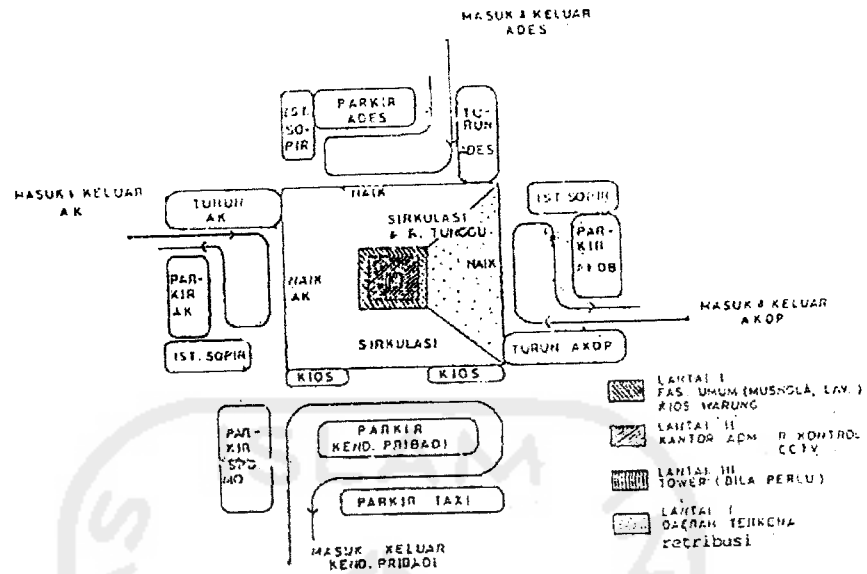 MASUK & KELUAR
ADES
IST.
SO-
PIR
PARKIR
ADES
TU-
RUN
ADES
MASUK & KELUAR
AK
TURUN
AK
NAIK
SIRKULASI
& R. TUNGGU
NAIK
IST SOPIR
PAR-
KIR
PAR-
KIR
AK
NAIK
AK
MASUK & KELUAR
AKDP
IST. SOPIR
SIRKULASI
TURUN AKDP
KIOS
KIOS
PAR-
KIR
MO
PARKIR
KEND. PRIBADI
PARKIR TAXI
MASUK KELUAR
KEND. PRIBADI
LANTAI I
FAS. UMUM (MUSHOLA, LAV.)
KIOS WARUNG
LANTAI II
KANTOR ADM R KONTROL
CCTV
LANTAI III
TOWER (BILA PERLU)
LANTAI I
DAERAH TERKENA
retribusi
ISLAM